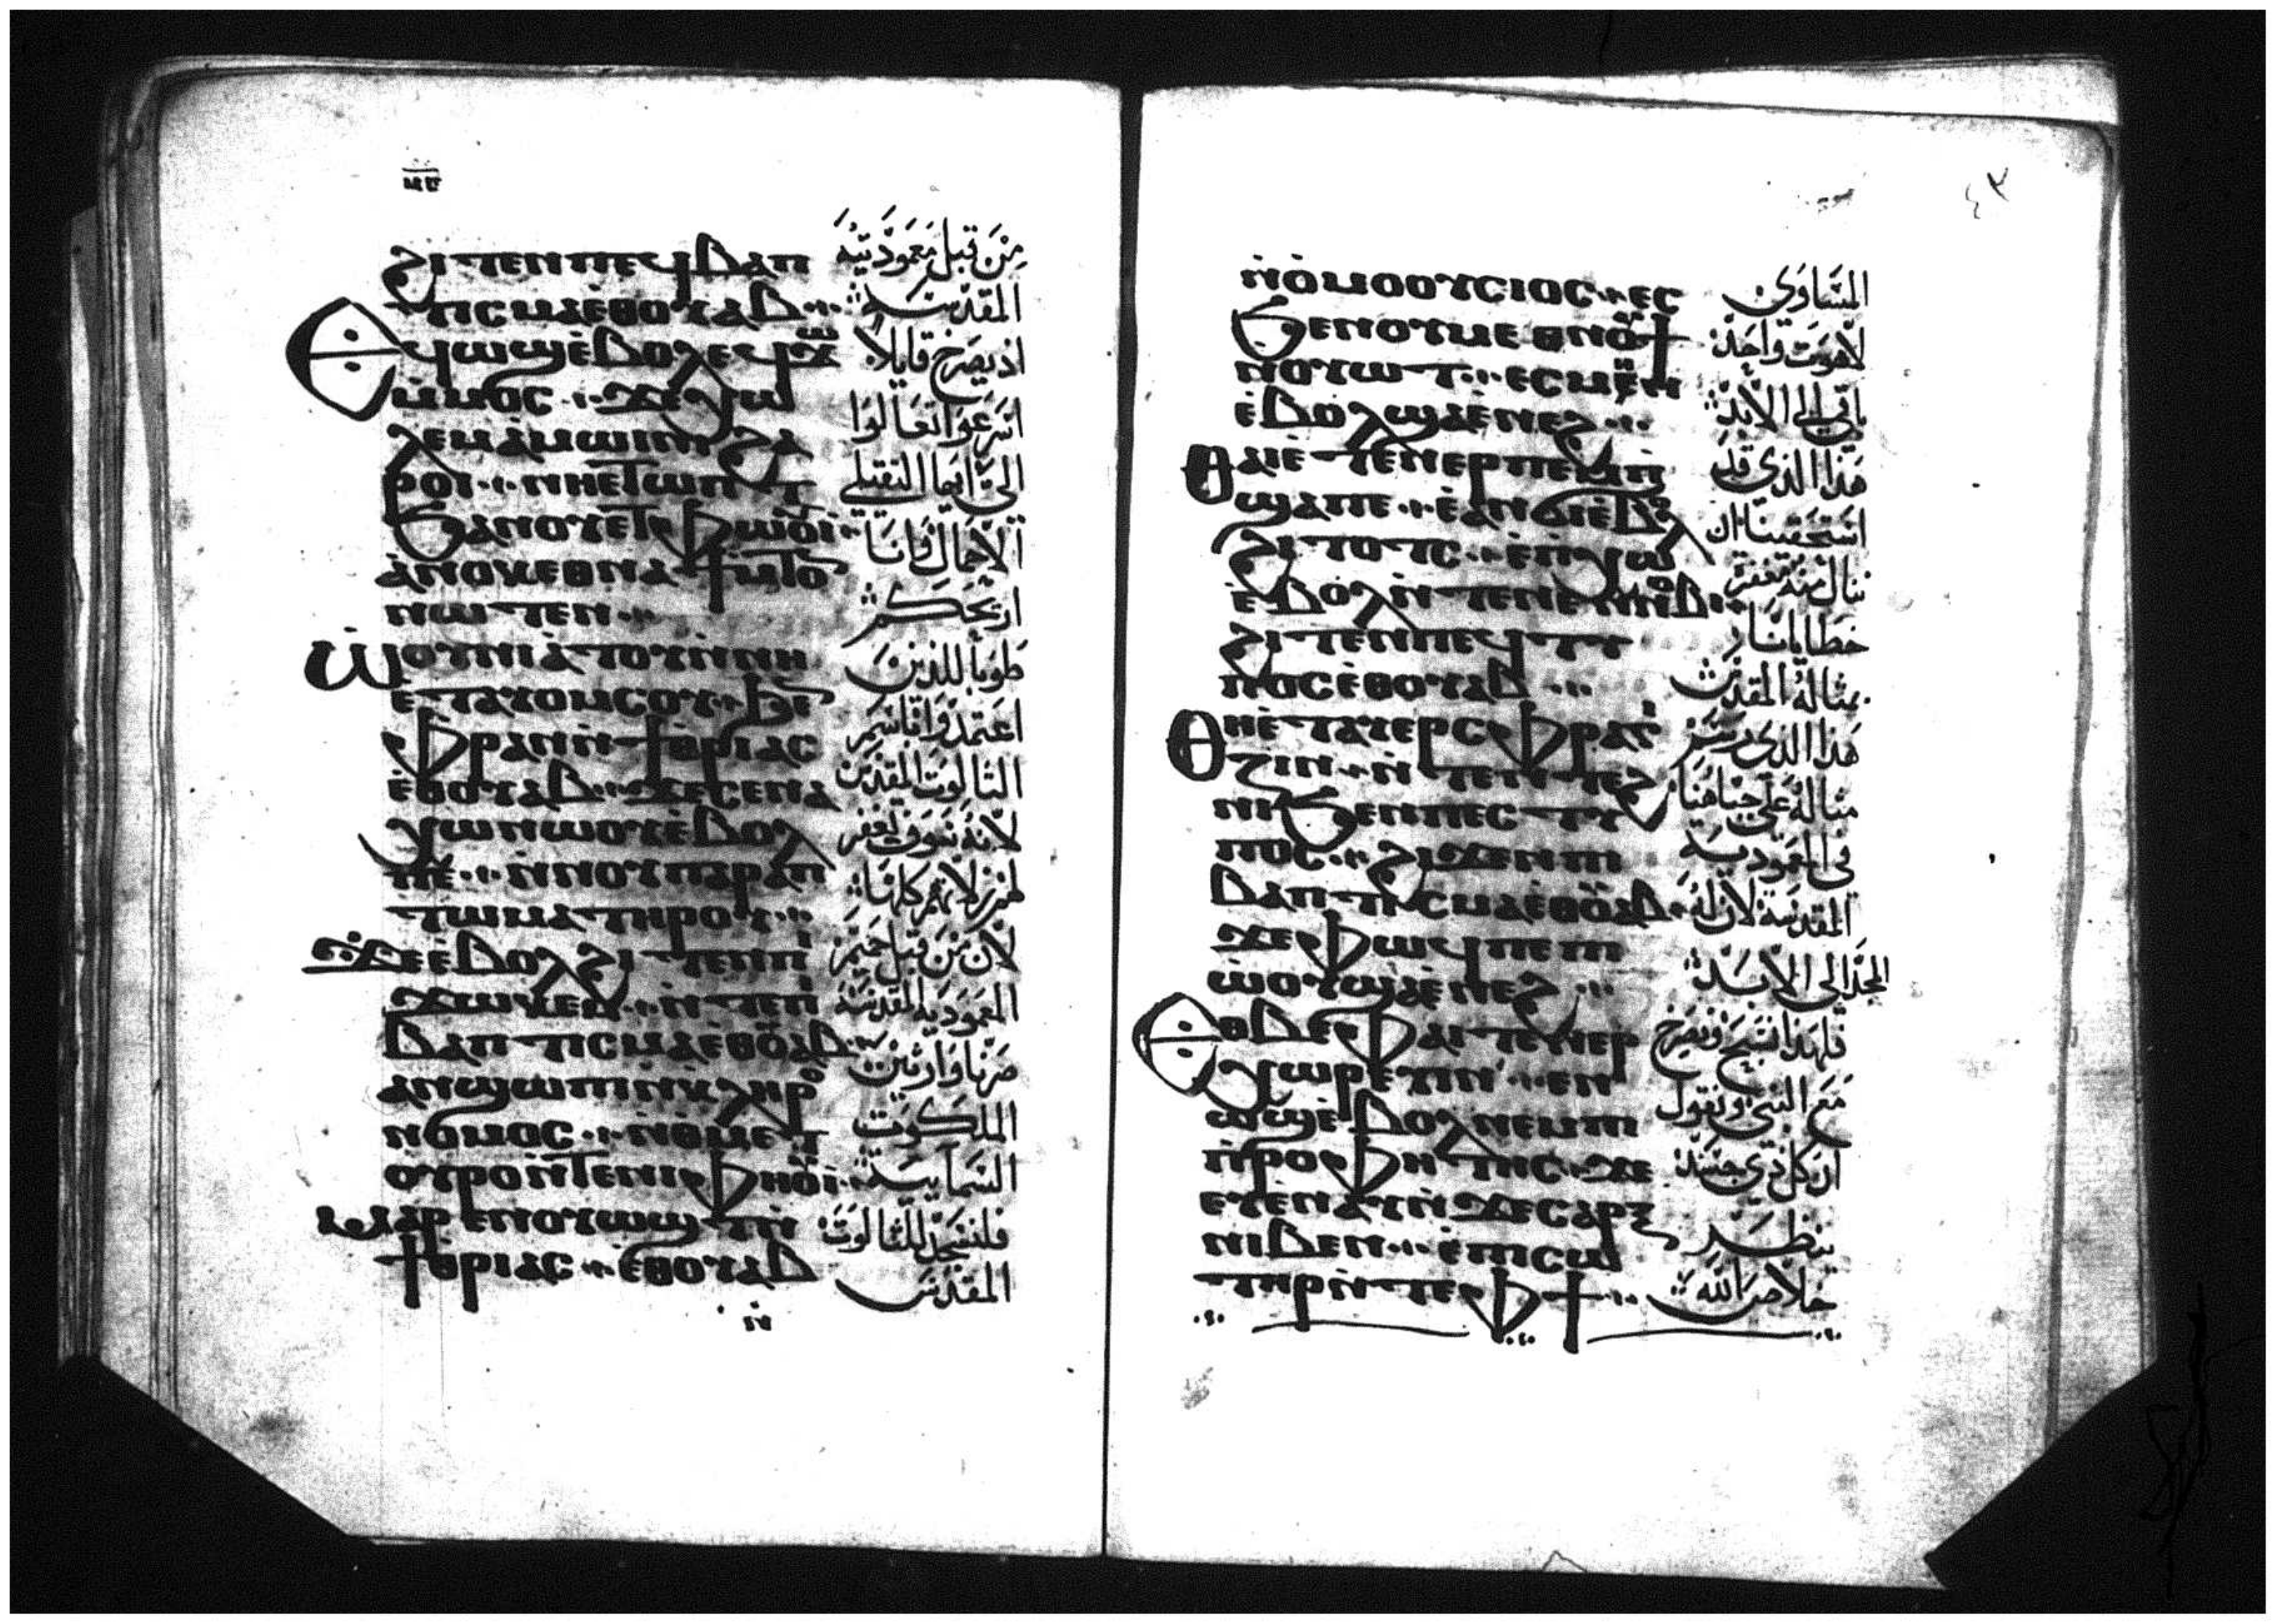 ϩⲓⲧⲉⲛⲡⲉϥⲃⲁⲡ
ⲧⲓⲥⲙⲁⲉ̀ⲑⲟⲩⲁⲃ
Ⲉϥⲱϣⲉ̀ⲃⲟⲗ ⲉϥϫⲱ
ⲙ̀ⲙⲟⲥ ϫⲉϫⲱ
ⲗⲉⲙⲁ̀ⲙⲱⲓⲛⲓ ϩⲁ
ⲣⲟⲓ ⲛⲏⲉⲧⲟⲡⲧ
ϧⲁⲛⲟⲩⲉⲧⲫⲱⲟⲩⲓ
ⲁ̀ⲛⲟⲕⲉⲑⲛⲁϯⲙ̀ⲧⲟ
ⲛⲱⲧⲉⲛ
Ⲱ̀ⲟⲩⲛⲓⲁ̀ⲧⲟⲩⲛ̀ⲛⲏ
ⲉⲧⲁⲩⲟⲙⲥⲟⲩ ϧⲉ
ⲫⲣⲁⲛⲛ̀ϯⲑⲣⲓⲁⲥ
ⲉ̀ⲑⲟⲩⲁⲃ ϫⲉⲥⲉⲛⲁ
ⲭⲱⲛⲱⲟⲩⲉ̀ⲃⲟⲗ
ⲛⲉ ⲛ̀ⲛⲟⲩⲡⲁⲣⲁⲡ
ⲧⲱⲙⲁⲧⲏⲣⲟⲩ
ϫⲉⲉ̀ⲃⲟⲗϩⲓⲧⲉⲛⲡⲓ
ϫⲱⲕⲉⲙ ⲛ̀ⲧⲉⲡⲓ
ⲃⲁⲡⲧⲓⲥⲙⲁⲉ̀ⲑⲟⲩⲁⲃ
ⲁⲛϣⲱⲡⲓⲛ̀ⲕⲗⲏⲣⲟ
ⲛⲟⲙⲟⲥ ⲛ̀ⲑⲙⲉⲧ
ⲟⲩⲣⲟⲛ̀ⲧⲉⲛⲓⲫⲏⲟⲩⲓ
ⲙⲁⲣⲉⲛⲟⲩⲱϣⲧⲛ̀
ϯⲑⲣⲓⲁⲥ ⲉ̀ⲑⲟⲩⲁⲃ
مِن قبل معموديته
المقدسة
اذ يصرخ قايلا
اسرعوا تعالوا
الي ايها الثقيلي
الاحمال فانا
اريحكم
طوبا للذين
اعتمدوا باسم
الثالوت المقدس
لانه سوف تغفر
لهم زلاتهم كلها
لان من قبل حميم
المعمودية المقدسة
صرنا وارثين
الملكوت
السمايية
فلنسجد للثالوت
المقدس
ⲛ̀ⲟ̀ⲙⲟⲟⲩⲥⲓⲟⲥ ⲉⲥ
ϧⲉⲛⲟⲩⲙⲉⲑⲛⲟⲩϯ
ⲛⲟⲩⲱⲧ ⲉⲥⲙⲏⲛ
ⲉ̀ⲃⲟⲗϣⲁⲉ̀ⲛⲉϩ
Ⲑⲁⲓⲉ̀ⲧⲉⲛⲉⲣⲡⲉⲙⲡ
ϣⲁⲡⲉ ⲉ̀ⲁⲛϭⲓⲉ̀ⲃⲟⲗ
ϩⲓⲧⲟⲧⲥ ⲉ̀ⲡⲭⲱ
ⲉ̀ⲃⲟⲗⲛ̀ⲧⲉⲛⲉⲛⲛⲟⲃⲓ
ϩⲓⲧⲉⲛⲡⲉϥⲧⲩ
ⲡⲟⲥⲉ̀ⲑⲟⲩⲁⲃ
Ⲑⲏⲉ̀ⲧⲁⲩⲉⲣⲥⲫⲣⲁⲅ
ⲍⲓⲛ ⲛ̀ⲧⲉⲛⲧⲉϩ
ⲛⲓϧⲉⲛⲡⲉⲥⲧⲩ
ⲡⲟⲥ ϩⲓϫⲉⲛⲡⲓ
ⲃⲁⲡⲧⲓⲥⲙⲁⲉ̀ⲑⲟⲩⲁⲃ
ϫⲉⲫⲱϥⲡⲉⲡⲓ
ⲱ̀ⲟⲩϣⲁⲉ̀ⲛⲉϩ
Ⲉⲑⲃⲉⲫⲁⲓⲧⲉⲛⲉⲣ
ⲭⲱⲣⲉⲩⲓⲛ ⲉⲛ
ⲱϣⲉ̀ⲃⲟⲗ ⲛⲉⲙⲡⲓ
ⲡ̀ⲣⲟⲫⲏⲧⲏⲥ ϫⲉ
ⲉⲩⲉⲛⲁⲩⲛ̀ϫⲉⲥⲁⲣⲝ
ⲛⲓⲃⲉⲛ ⲉ̀ⲡⲓⲥⲱ
ⲧⲏⲣⲛ̀ⲧⲉⲫϯ
٤٣
المساوي
لاهوت واحد
باقي الي الابد
هذا الذي قد
استحقينا ان
ننال منه مغفرة
خطايانا
بمثاله المقدس
هذا الذي رسم
مثاله علي جباهنا
في المعمودية
المقدسة لان له
المجد الي الابد
فلهذا نسبح ونصرخ
مع النبي ونقول
ان كل ذي جسد
ينظر
خلاص الله